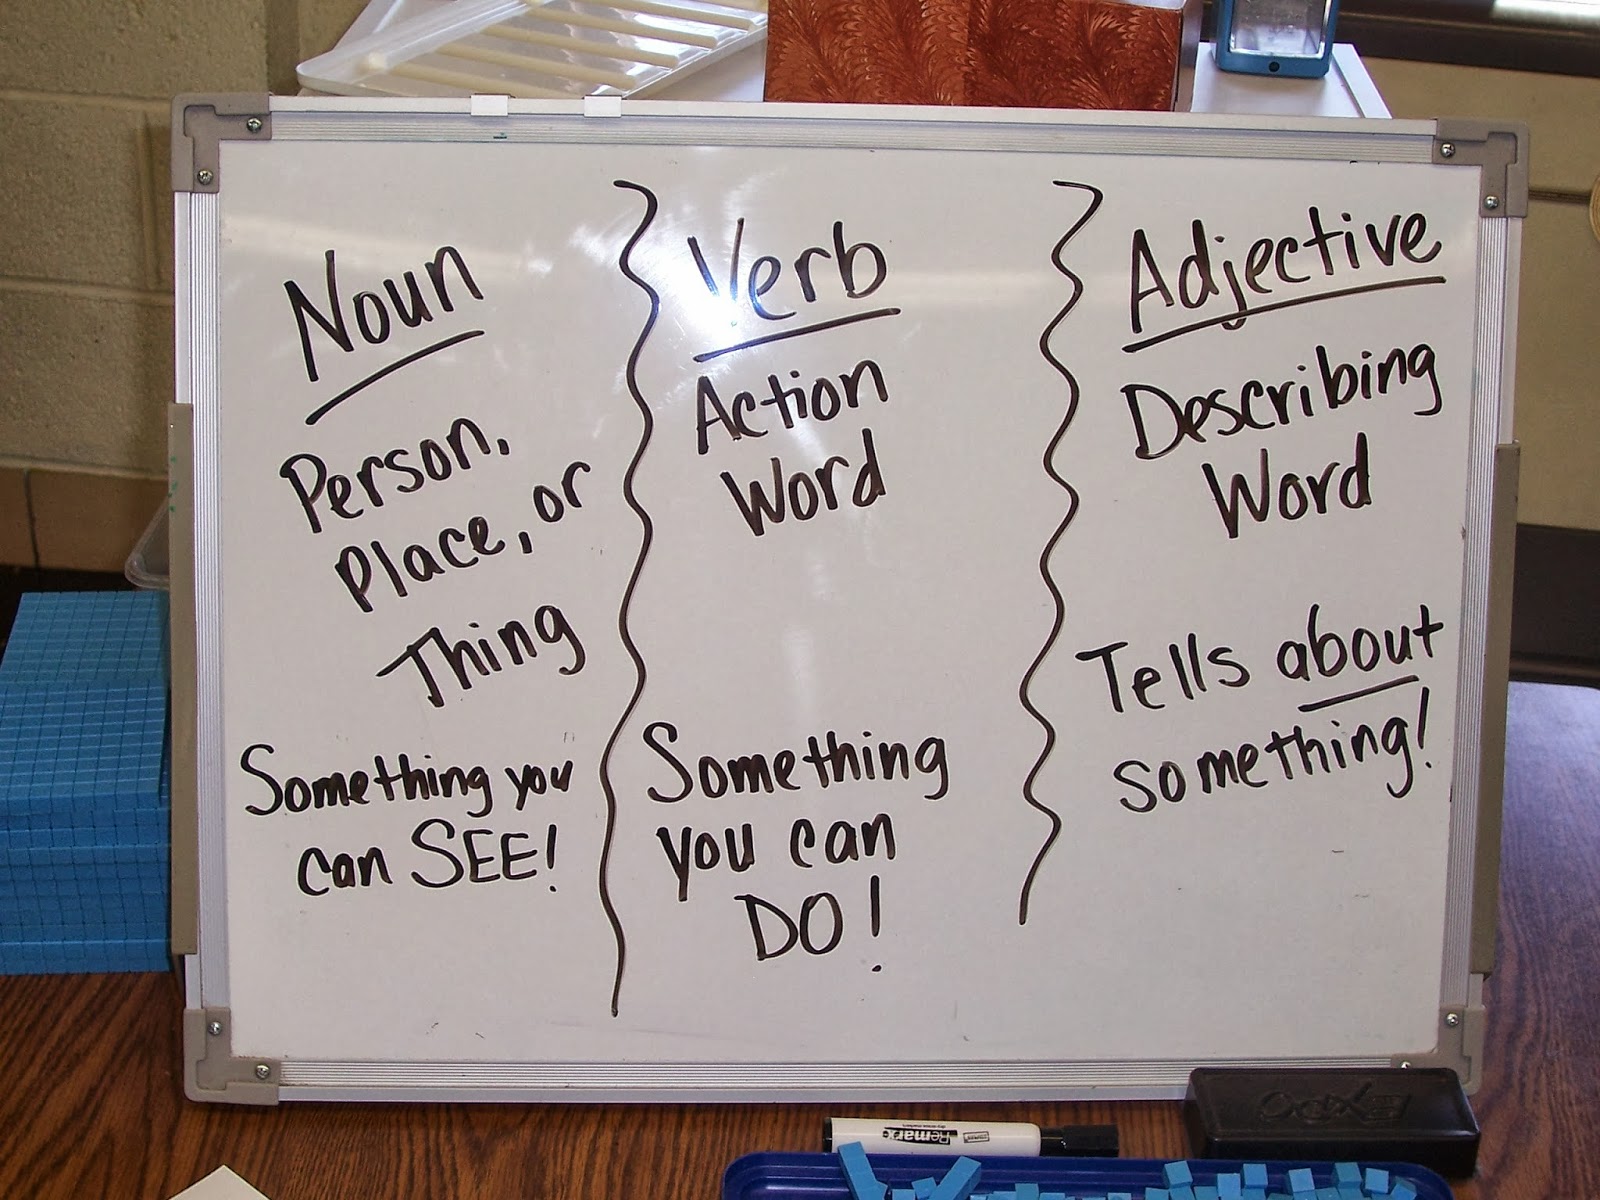 Noun
Person,
Place, or
Thing
Something you
can SEE!
Verb
Action
Word
Something
you can
DO!
Adjective
Describing
Word
Tells about
something!
Remarx